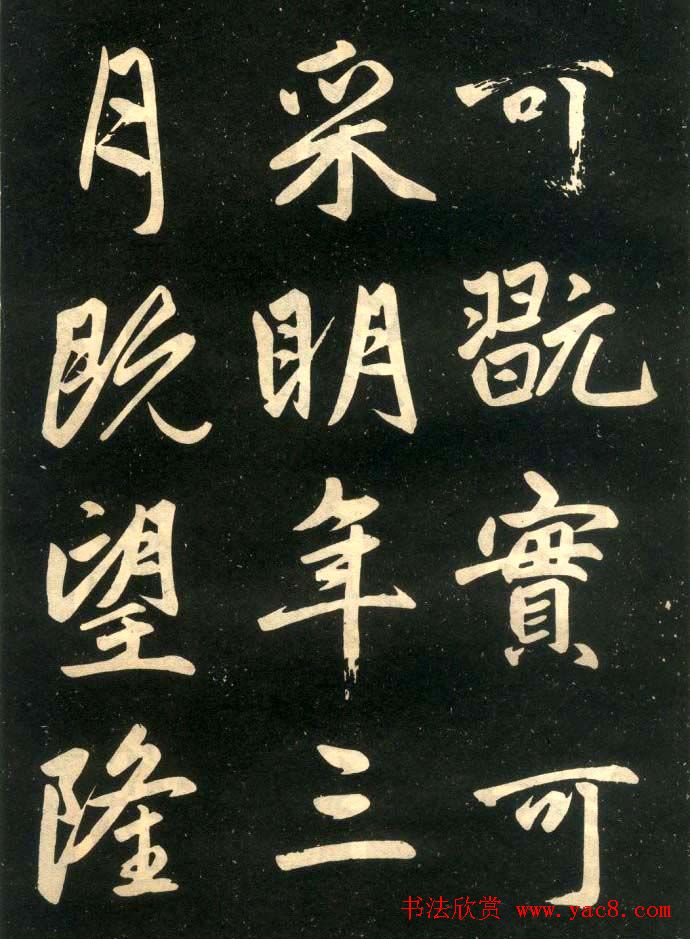 可翫實可
采明年三
月既望隆
书法欣赏 www.yac8.com